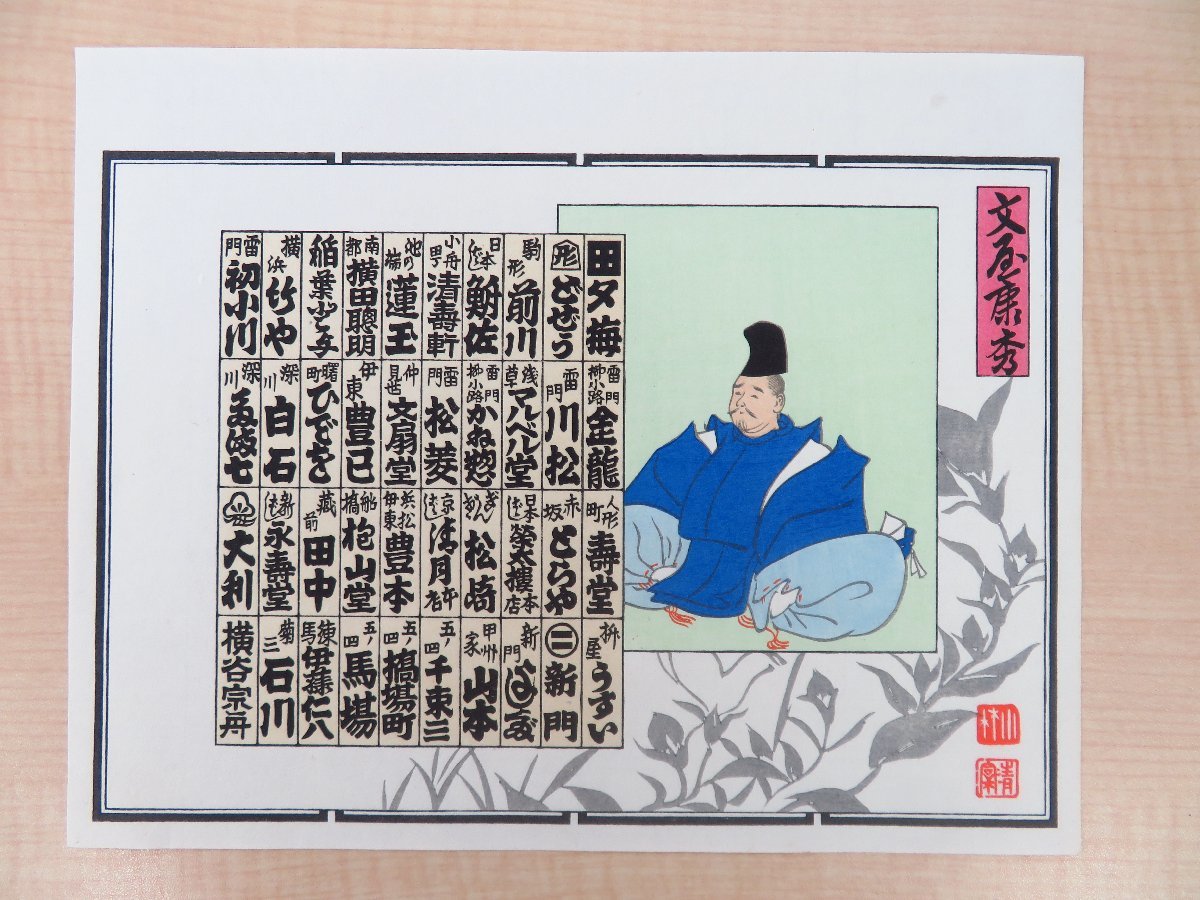 文屋康秀
田夕梅
形 どぜう
駒形 前川
日本ばし 鮒佐
小舟町 清壽軒
池の端 蓮玉
南都 横田聰明
稲葉
横浜 竹や
雷門 初小川
雷門柳小路 金龍
雷門 川松
浅草 マルベル堂
雷門柳小路 かね惣
雷門 松菱
仲見世 文扇堂
伊東 豊已
曙町 ひでを
深川 白石
深川
人形町 壽堂
赤坂 とらや
日本ばし 榮太樓本店
ぎんざ 松崎
京ばし 清月
浜松伊東 豊本
船橋 抱山堂
藏前 田中
新ばし 永壽堂
大利
桝屋 うすい
二 新門
新門
甲州家 山本
五ノ四 千束三
五ノ四 橋場町
五ノ四 馬場
練馬 伊藤仁八
菊三 石川
横谷宗舟
小林
清